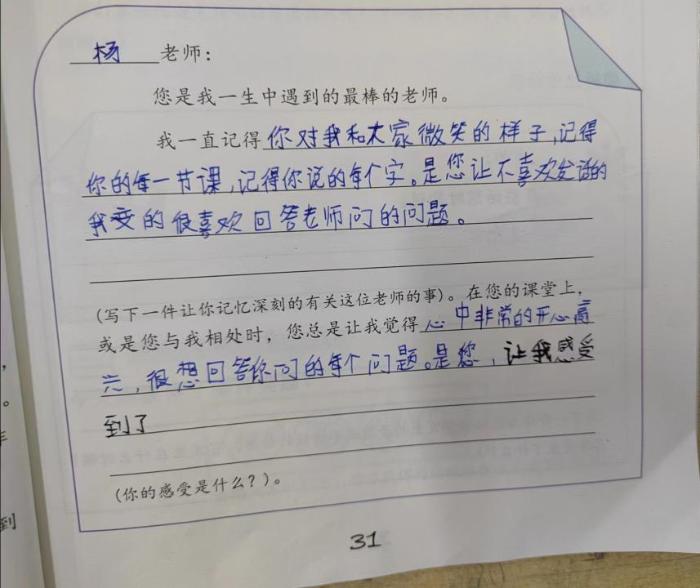 杨 老师：
您是我一生中遇到的最棒的老师。
我一直记得你对我和大家微笑的样子,记得
你的每一节课,记得你说的每个字。是您让不喜欢发话的
我变的很喜欢回答老师问的问题。
(写下一件让你记忆深刻的有关这位老师的事)。在您的课堂上，
或是您与我相处时，您总是让我觉得心中非常的开心高
兴，很想回答你问的每个问题。是您，让我感受
到了
(你的感受是什么？)。
31
到